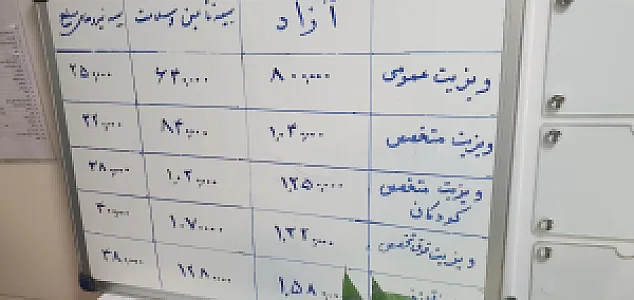 آزاد بیمه تأمین و سلامت بیمه نیروهای مسلح
ویزیت عمومی ۸۰۰,۰۰۰ ۶۴۰,۰۰۰ ۲۵۰,۰۰۰
ویزیت متخصص ۱,۰۴۰,۰۰۰ ۸۴۰,۰۰۰
ویزیت متخصص کودکان ۱,۲۵۰,۰۰۰ ۱,۰۲۰,۰۰۰ ۲۸۰,۰۰۰
ویزیت فوق تخصص ۱,۳۲۰,۰۰۰ ۱,۰۷۰,۰۰۰
۱,۵۸۰,۰۰۰ ۱,۲۸۰,۰۰۰ ۳۸۰,۰۰۰